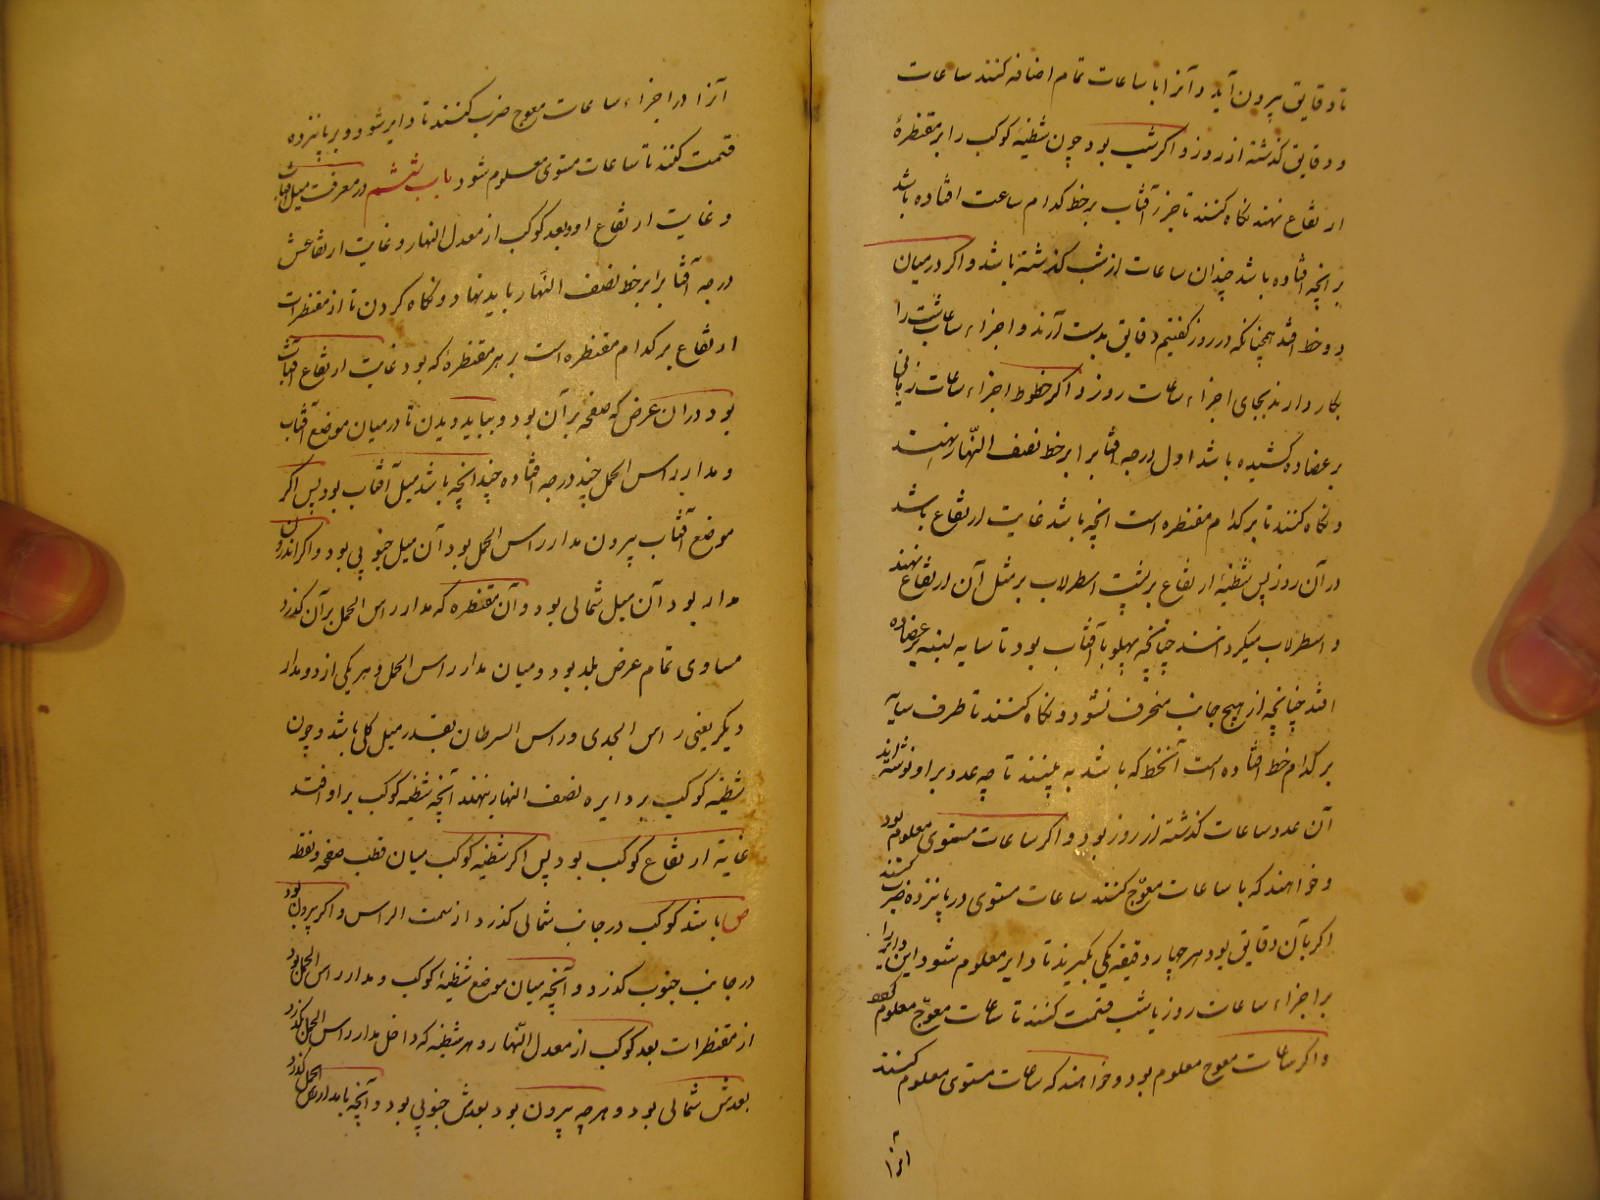 تا دقایق بیرون آید و آنرا با ساعات تمام اضافه کنند ساعات
و دقایق گذشته از روز و اگر شب بود چون شظیهٔ کوکب را بر مقنطرهٔ
ارتفاع نهند نگاه کنند تا جزر آفتاب بر خط کدام ساعت افتاده باشد
بر انچه افتاده باشد چندان ساعات از شب گذشته باشد و اگر درمیان
دو خط افتد همچنانکه در روز گفتیم دقایق بدست آرند و اجزاء ساعات شب را
بکار دارند بجای اجزاء ساعات روز و اگر خطوط اجزاء ساعات زمانی
بر عضاده کشیده باشد اول درجه آفتاب را بر خط نصف النّهار نهند
و نگاه کنند تا بر کدام مقنطره است انچه باشد غایت ارتفاع باشد
در آن روز پس شظیهٔ ارتفاع بر پشت اسطرلاب بر مثل آن ارتفاع نهند
و اسطرلاب میگردانند چنانکه پهلو با آفتاب بود تا سایه لبنه بر عضاده
افتد چنانچه از هیچ جانب منحرف نشود و نگاه کنند تا طرف سایه
بر کدام خط افتاده است آنخط که باشد به بینند تا چه عدد بر او نوشته‌اند
آن عدد ساعات گذشته از روز بود و اگر ساعات مستوی معلوم بود
و خواهند که با ساعات معوّج کنند ساعات مستوی در پانزده ضرب کنند
اگر بآن دقایق بود هر چهار دقیقه یکی بگیرند تا دایر معلوم شود این دایر را
بر اجزاء ساعات روز یا شب قسمت کنند تا ساعات معوّج معلوم
و اگر ساعات معوج معلوم بود و خواهند که ساعات مستوی معلوم کنند
آنرا در اجزاء ساعات معوج ضرب کنند تا دایر شود و بر پانزده
قسمت کنند تا ساعات مستوی معلوم شود باب ششم در معرفت میل آفتاب
و غایت ارتفاع او و بعد کوکب از معدل النهار و غایت ارتفاعش
درجه آفتاب را بر خط نصف النّهار باید نهاد و نگاه کردن تا از مقنطرات
ارتفاع بر کدام مقنطره است بر هر مقنطره که بود غایت ارتفاع آفتاب
بود در ان عرض که صفحه بر آن بود و بباید دیدن تا در میان موضع آفتاب
و مدار راس الحمل چند درجه افتاده چند انچه باشد میل آفتاب بود پس اگر
موضع آفتاب بیرون مدار راس الحمل بود آن میل جنوبی بود و اگر اندرون
مدار بود آن میل شمالی بود و آن مقنطره که مدار راس الحمل بر آن گذرد
مساوی تمام عرض بلد بود و میان مدار راس الحمل و هر یکی از دو مدار
دیگر یعنی راس الجدی و راس السرطان بقدر میل کلی باشد و چون
شظیه کوکب بر دایره نصف النهار نهند آنچه شظیه کوکب بر او افتد
غایة ارتفاع کوکب بود پس اگر شظیه کوکب میان قطب صفحه و نقطه
ص باشد کوکب در جانب شمالی گذرد از سمت الراس و اگر بیرون بود
در جانب جنوب گذرد و آنچه میان موضع شظیهٔ کوکب و مدار راس الحمل بود
از مقنطرات بعد کوکب از معدل النّهار و هر شظیه که داخل مدار راس الحمل گذرد
بعدش شمالی بود و هر چه بیرون بود بعدش جنوبی بود و آنچه با مدار راس الحمل گذرد